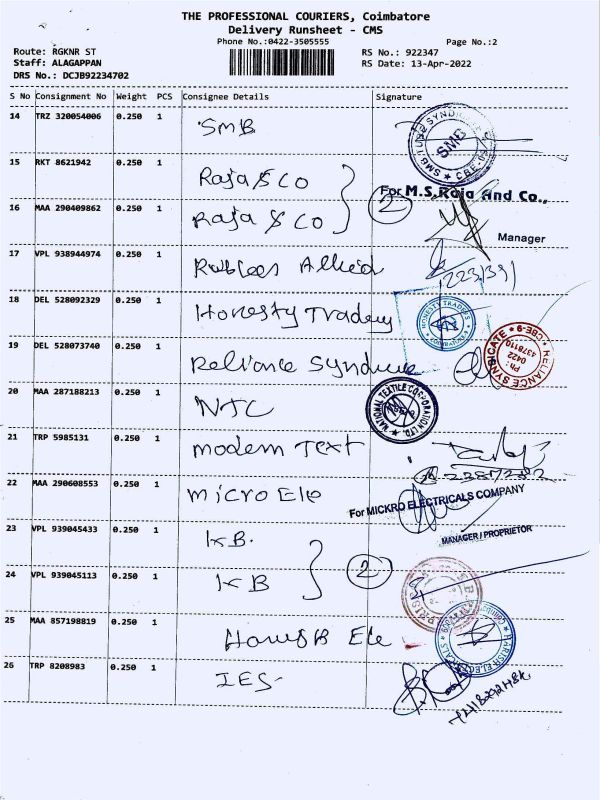 THE PROFESSIONAL COURIERS, Coimbatore
Delivery Runsheet - CMS
Phone No.:0422-3505555 Page No.:2
Route: RGKNR ST RS No.: 922347
Staff: ALAGAPPAN RS Date: 13-Apr-2022
DRS No.: DCJB92234702
S No Consignment No Weight PCS Consignee Details Signature
14 TRZ 320054006 0.250 1 SMB
SMB
15 RKT 8621942 0.250 1 Raja & Co
For M.S.Raja And Co.,
16 MAA 290409862 0.250 1 Raja & Co 2
Manager
17 VPL 938944974 0.250 1 Allied
18 DEL 528092329 0.250 1 Honesty Trading
HONESTY TRADERS
COIMBATORE
19 DEL 528073740 0.250 1 Reliance
RELIANCE SYNDICATE CBE-9
Ph: 0422 4378110
20 MAA 287188213 0.250 1 NTC
NATIONAL TEXTILE CORPORATION LTD.
21 TRP 5985131 0.250 1 modern Text
22 MAA 290608553 0.250 1 micro Ele
For MICKRO ELECTRICALS COMPANY
MANAGER / PROPRIETOR
23 VPL 939045433 0.250 1 KB.
24 VPL 939045113 0.250 1 KB 2
25 MAA 857198819 0.250 1 Ele
HARISH ELECTRICALS
26 TRP 8208983 0.250 1 IES-